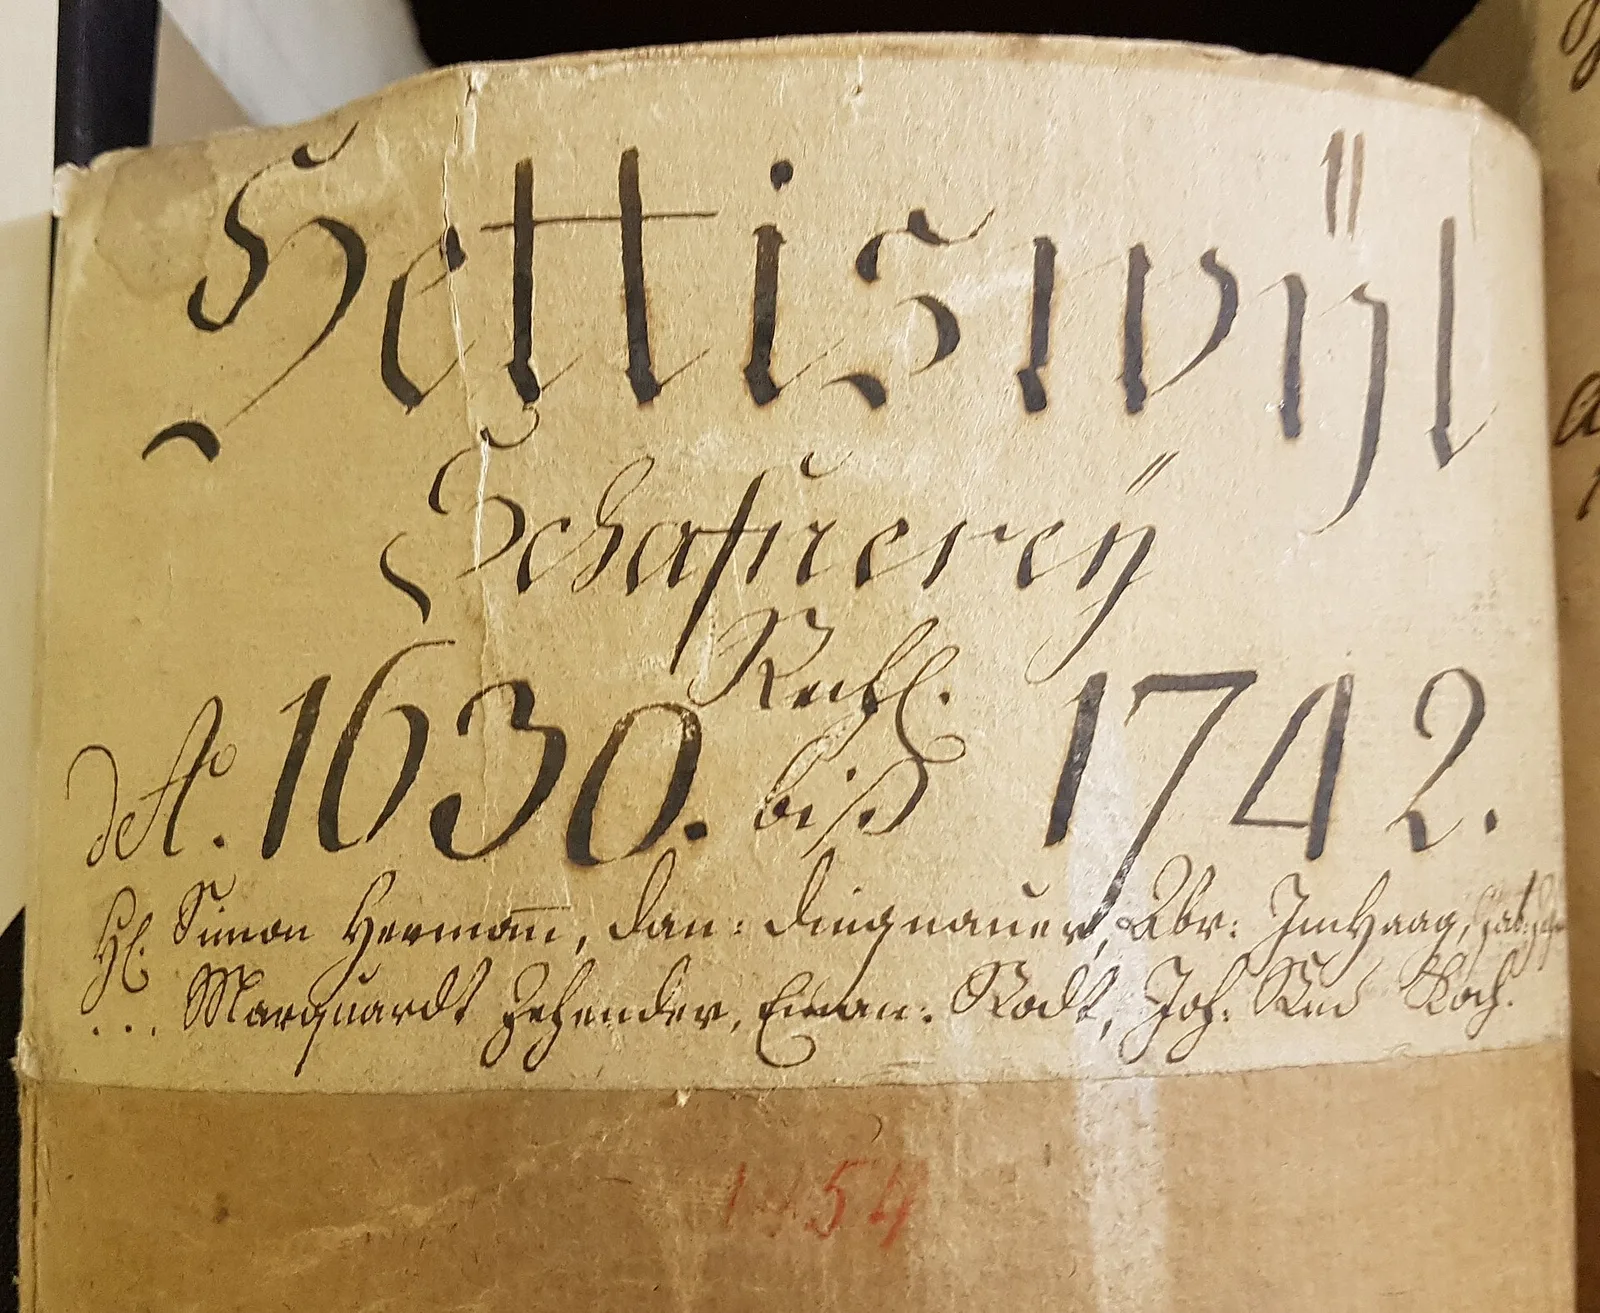 Hettiswÿl
Schafnereÿ
Rech.
de Ao. 1630. biß 1742.
Hl. Simon Herman̄, Dan: Dingnauer, Abr: Imhaag,
... Marquardt Zehender, Eman: Rodt, Joh: Rud Koch.
1354